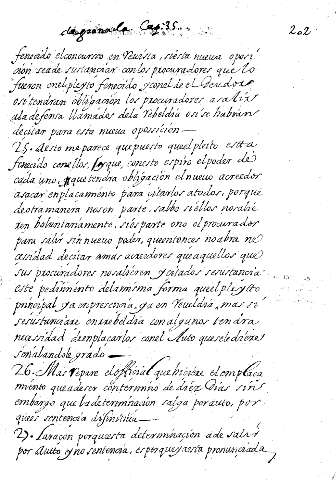 de granada Cap. 35. 202
fenecido el concurso en Revista, si esta nueva oposi
cion se a de sustanciar con los procuradores que lo
fueron en el pleyto fenecido, y con el de el Deudor
estendran obligacion los procuradores a salir
a la defensa llamados de la Rebeldia o si se habran
de citar para esta nueva oposicion
25. A esto me parece que puesto que el pleito esta
fenecido con ellos, porque, con esto espiro el poder de
cada uno, que tendra obligacion el nuevo acreedor
a sacar enplacamiento para citarlos a todos, porque
de otra manera no son parte, salbo si ellos no salie
ren boluntariamente, si es parte o no el procurador
para salir sin nuevo poder, que entonces no abra ne
cesidad de citar a mas acreedores que aquellos que
sus procuradores no salieren, y citados se sustancia
este pedimiento de la misma forma que el pleyto
principal, ya en presencia, ya en Reueldia, mas si
se sustanciare en rebeldia con algunos tendra
necessidad de emplacarlos con el Auto que se le diere
señalandole grado
26. Mas repare el official que hiciere el emplaca
miento que a de ser con termino de diez Dias sin
embargo que la determinacion salga por auto, por
que es sentencia difinitiva
27. La raçon porque esta determinacion a de salir
por Auto y no sentencia, es porque ya esta pronunciada